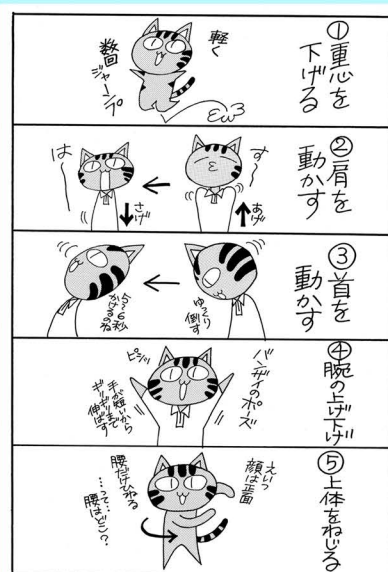 ①重心を
下げる
軽く
数回
ジャンプ
②肩を
動かす
す〜
あげ
は〜
さげ
③首を
動かす
ゆっくり
倒す
5〜6秒
かけるのね
④腕の上げ下げ
バンザイのポーズ
ピシッ
手が短いから
ギリギリまで
伸ばす
⑤上体をねじる
えいっ
顔は正面
腰だけひねる
…って…
腰はどこ?